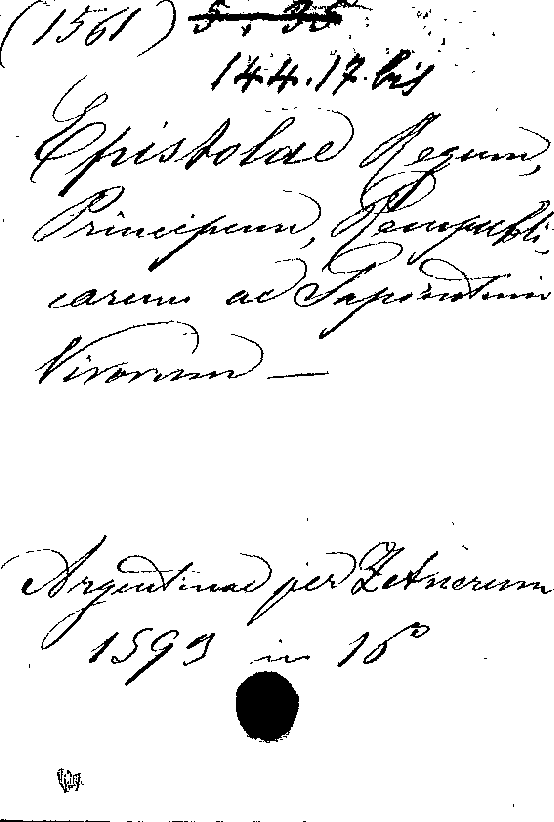 (1561)
14.4.17.bis
Epistolae Regum,
Principum, Rerumpubli-
carum ac Sapientum
Virorum —
Argentinae per Zetnerum
1593 in 16°